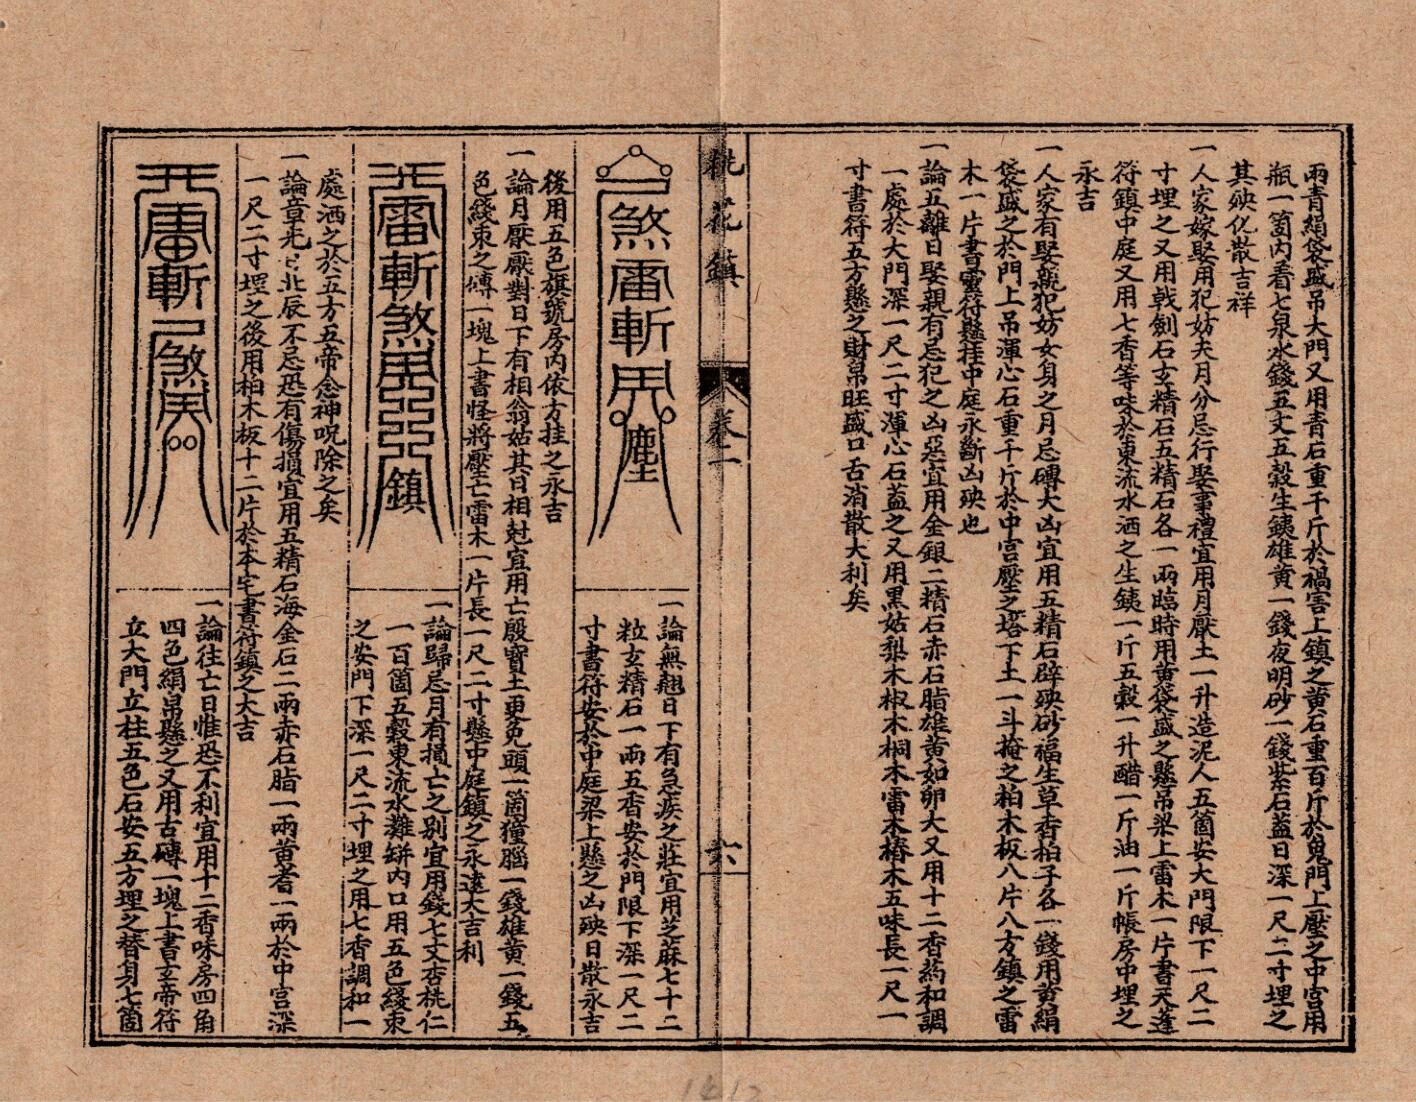 兩青絹袋盛吊大門又用青石重千斤於禍害上鎮之黃石重百斤於鬼門上壓之中宮用
瓶一箇內着七泉水錢五丈五穀生鐵雄黃一錢夜明砂一錢紫石蓋日深一尺二寸埋之
其殃化散吉祥
一人家嫁娶用犯妨夫月分忌行娶事禮宜用月厭土一升造泥人五箇安大門限下一尺二
寸埋之又用戟劍石玄精石五精石各一兩臨時用黃袋盛之懸吊梁上雷木一片書天蓬
符鎮中庭又用七香等味於東流水洒之生鐵一斤五穀一升醋一斤油一斤帳房中埋之
永吉
一人家有娶親犯妨女身之月忌磚大凶宜用五精石辟殃砂福生草杏柏子各一錢用黃絹
袋盛之於門上吊渾心石重千斤於中宮壓之塔下土一斗掩之柏木板八片八方鎮之雷
木一片書靈符懸挂中庭永斷凶殃也
一論五離日娶親有忌犯之凶惡宜用金銀二精石赤石脂雄黃如卵大又用十二香药和調
一處於大門深一尺二寸渾心石蓋之又用黑姑梨木椒木桐木雷木椿木五味長一尺一
寸書符五方懸之財帛旺盛口舌消散大利矣
桃花鎮
卷二
六
煞雷斬
塵
一論無翹日下有急疾之莊宜用芝蔴七十二
粒玄精石一兩五香安於門限下深一尺二
寸書符安於中庭梁上懸之凶殃日散永吉
後用五色旗號房內依方挂之永吉
一論月厭厭對日下有相翁姑其日相尅宜用亡殷寶土更兔頭一箇獐腦一錢雄黃一錢五
色綫束之磚一塊上書怪將壓亡雷木一片長一尺二寸懸中庭鎮之永遠大吉利
雷斬煞
鎮
一論歸忌月有損亡之別宜用錢七丈杏桃仁
一百箇五穀東流水難缾內口用五色綫束
之安門下深一尺二寸埋之用七香調和一
處洒之於五方五帝念神呪除之矣
一論章光亡北辰不忌恐有傷損宜用五精石海金石二兩赤石脂一兩黃耆一兩於中宮深
一尺二寸埋之後用柏木板十二片於本宅書符鎮之大吉
雷斬煞
一論往亡日惟恐不利宜用十二香味房四角
四色絹吊懸之又用古磚一塊上書玄帝符
立大門立柱五色石安五方埋之替身七箇